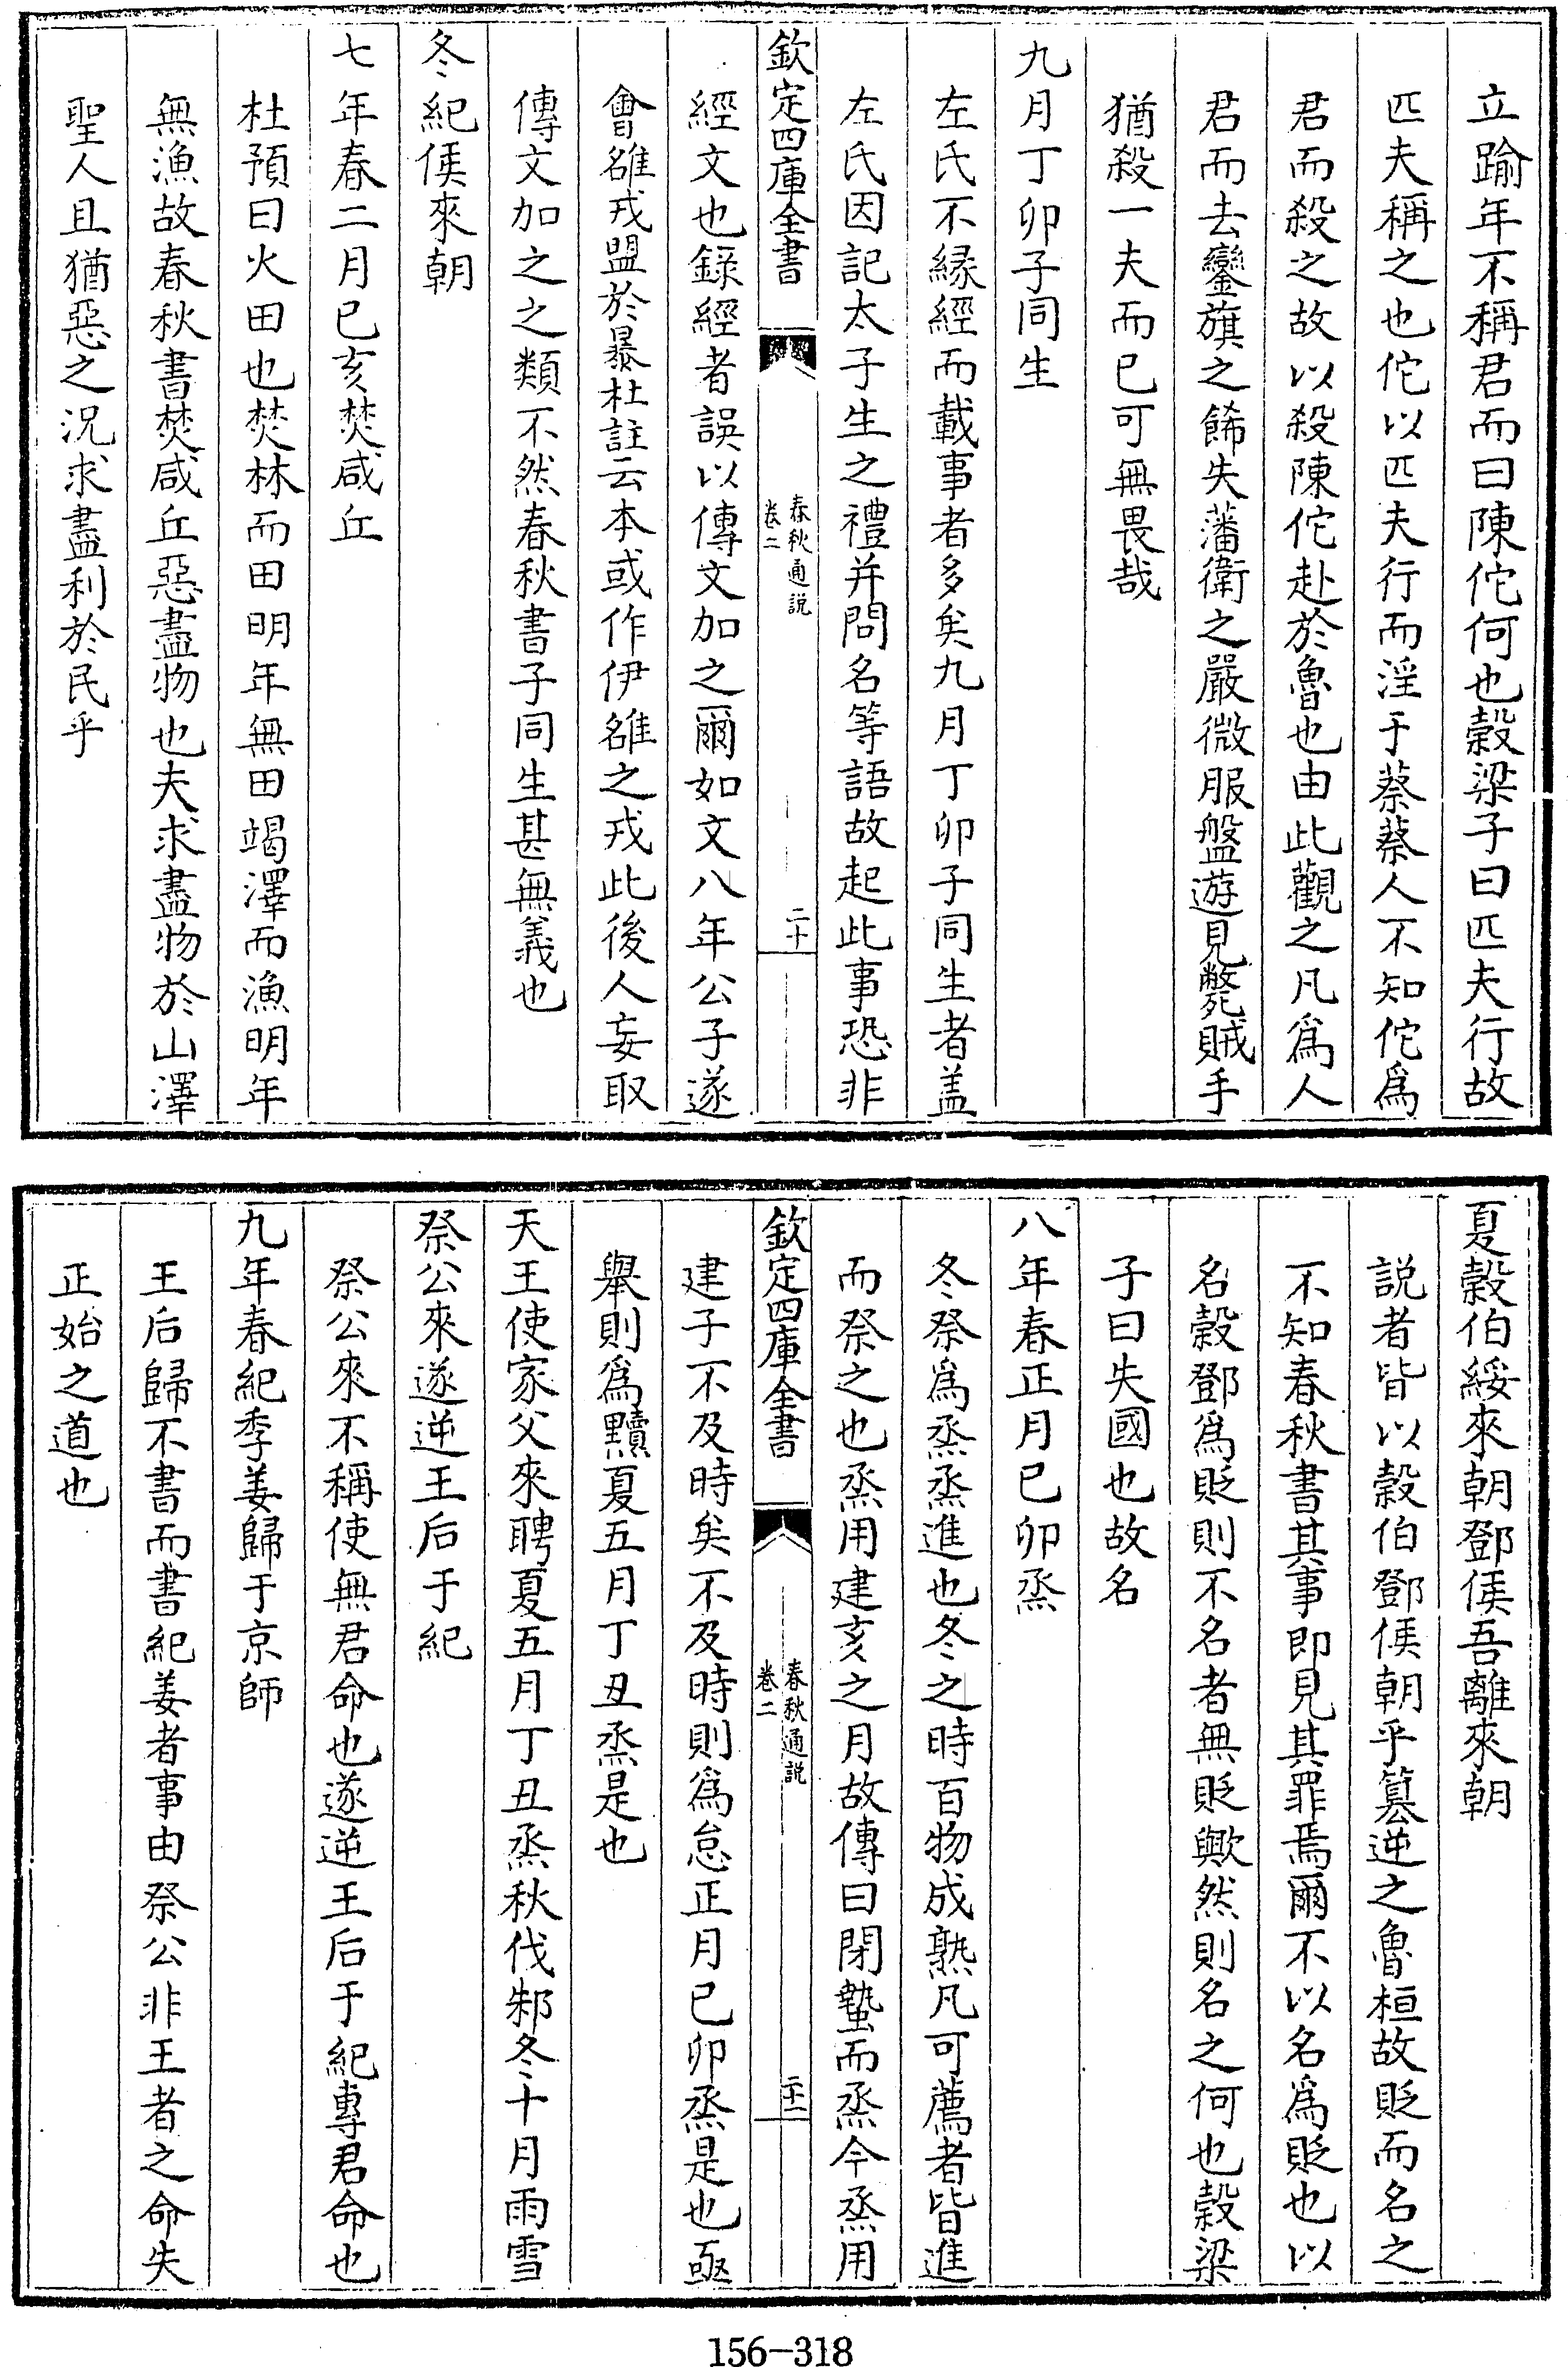 立踰年不稱君而曰陳佗何也穀梁子曰匹夫行故
匹夫稱之也佗以匹夫行而淫于蔡蔡人不知佗爲
君而殺之故以殺陳佗赴於魯也由此觀之凡爲人
君而去鑾旗之餙失藩衛之嚴微服盤遊見斃賊手
猶殺一夫而已可無畏哉
九月丁卯子同生
左氏不緣經而載事者多矣九月丁卯子同生者盖
左氏因記太子生之禮并問名等語故起此事恐非
欽定四庫全書
春秋通説
卷二
二十
經文也錄經者誤以傳文加之爾如文八年公子遂
會雒戎盟於暴杜註云本或作伊雒之戎此後人妄取
傳文加之之類不然春秋書子同生甚無義也
冬紀侯來朝
七年春二月已亥焚咸丘
杜預曰火田也焚林而田明年無田竭澤而漁明年
無漁故春秋書焚咸丘惡盡物也夫求盡物於山澤
聖人且猶惡之況求盡利於民乎
夏穀伯綏來朝鄧侯吾離來朝
説者皆以穀伯鄧侯朝乎簒逆之魯桓故貶而名之
不知春秋書其事即見其罪焉爾不以名爲貶也以
名穀鄧爲貶則不名者無貶歟然則名之何也穀梁
子曰失國也故名
八年春正月已卯烝
冬祭爲烝烝進也冬之時百物成熟凡可薦者皆進
而祭之也烝用建亥之月故傳曰閉蟄而烝今烝用
欽定四庫全書
春秋通説
卷二
二十一
建子不及時矣不及時則爲怠正月已卯烝是也亟
舉則爲黷夏五月丁丑烝是也
天王使家父來聘夏五月丁丑烝秋伐邾冬十月雨雪
祭公來遂逆王后于紀
祭公來不稱使無君命也遂逆王后于紀專君命也
九年春紀季姜歸于京師
王后歸不書而書紀姜者事由祭公非王者之命失
正始之道也
156-318